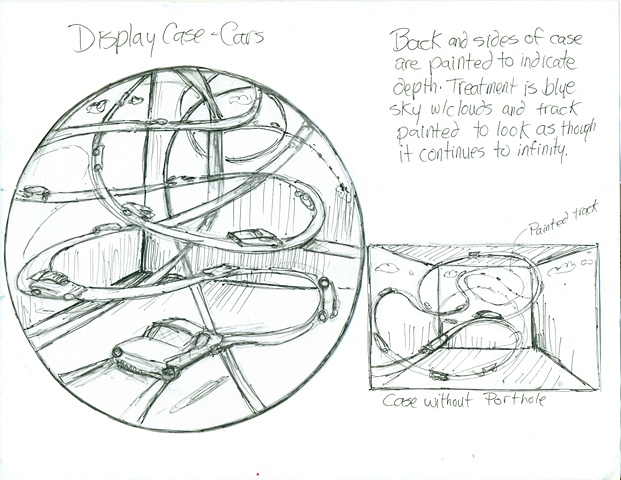 Display Case - Cars
Back and sides of case
are painted to indicate
depth. Treatment is blue
sky w/clouds and track
painted to look as though
it continues to infinity.
Painted track
Case without Porthole